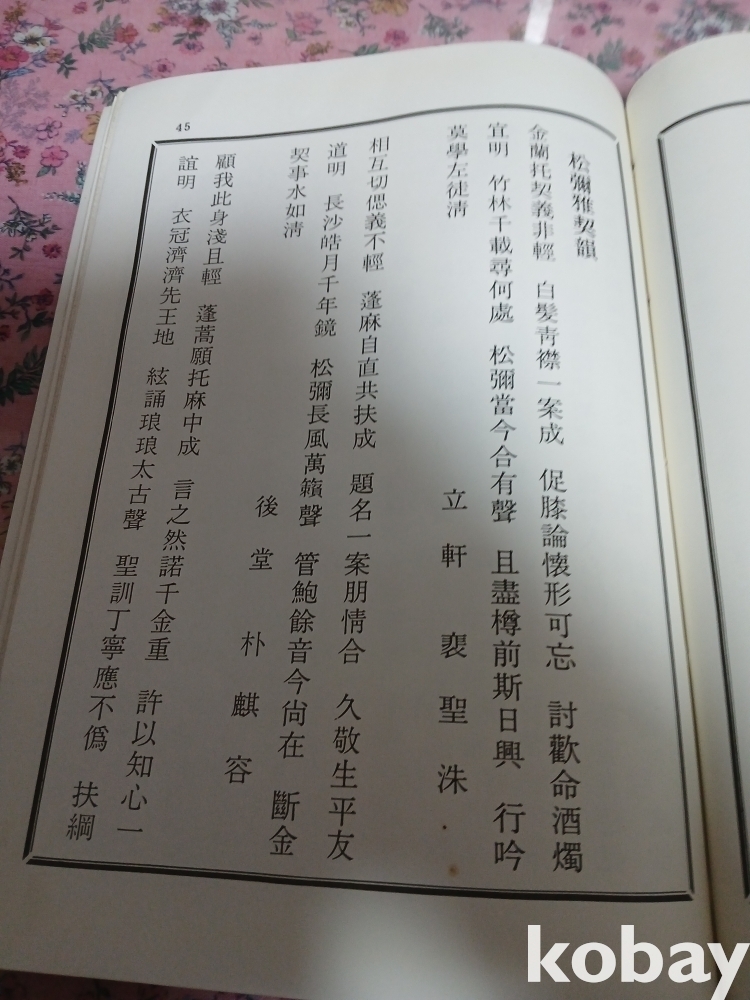 45
松彌雅契韻
金蘭托契義非輕 白髮靑襟一案成 促膝論懷形可忘 討歡命酒燭
宜明 竹林千載尋何處 松彌當今合有聲 且盡樽前斯日興 行吟
莫學左徒淸
立軒 裵聖洙
相互切偲義不輕 蓬麻自直共扶成 題名一案朋情合 久敬生平友
道明 長沙皓月千年鏡 松彌長風萬籟聲 管鮑餘音今尙在 斷金
契事水如淸
後堂 朴麒容
顧我此身淺且輕 蓬蒿願托麻中成 言之然諾千金重 許以知心一
誼明 衣冠濟濟先王地 絃誦琅琅太古聲 聖訓丁寧應不僞 扶綱
kobay